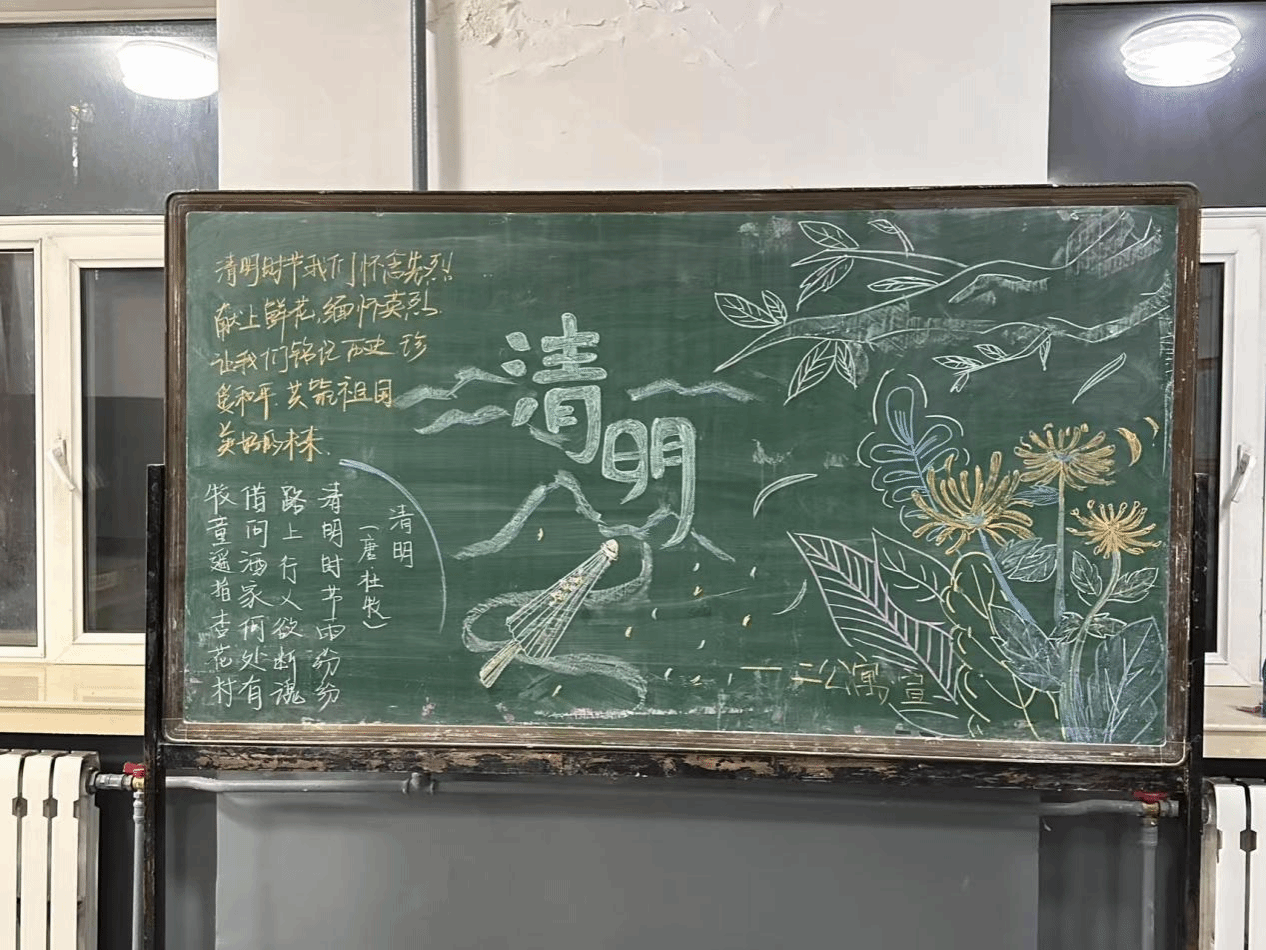 清明时节我们怀念先烈!
献上鲜花,缅怀英烈.
让我们铭记历史 珍
爱和平 共筑祖国
美好的未来.
清明
清明
(唐 杜牧)
清明时节雨纷纷
路上行人欲断魂
借问酒家何处有
牧童遥指杏花村
一二公寓 宣